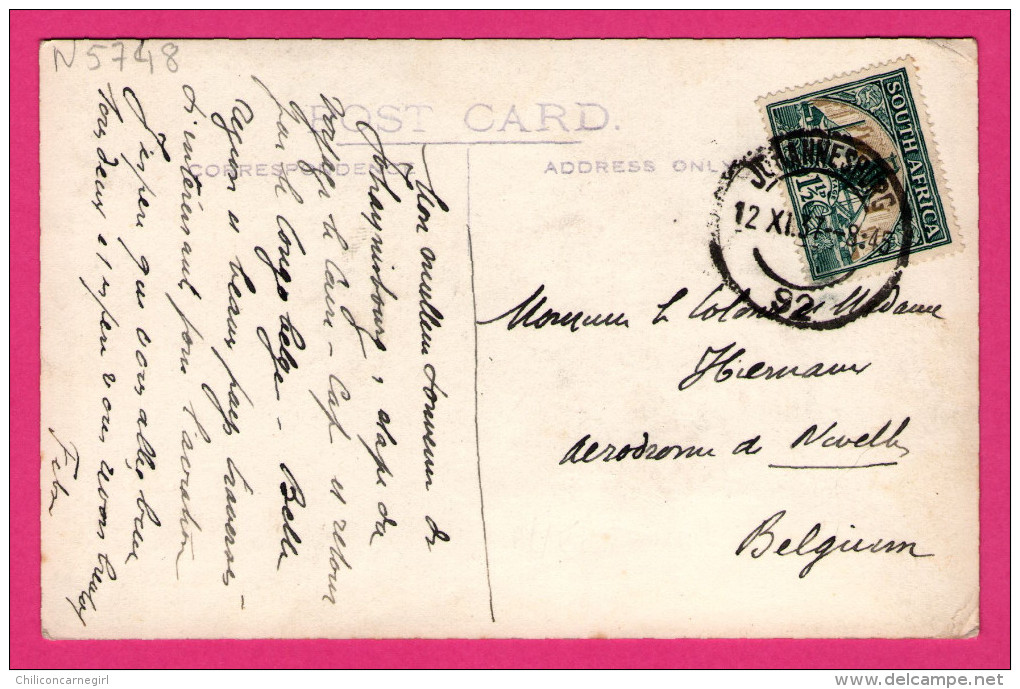 N 5748
POST CARD.
CORRESPONDENCE
ADDRESS ONLY
SOUTH AFRICA
1½D
JOHANNESBURG
12 XI 8:45
92
Mon meilleur souvenir de
Johannisbourg, étape du
voyage le Caire - Cap et retour
par le Congo belge - Belle
région et beaux pays traversés -
d'intéressant pour l'aviation
J'espère que vous allez bien
tous deux et espère vous revoir
Monsieur le Colonel et Madame
Hiernaux
Aerodrome de Nivelles
Belgium
Chiliconcarnegirl
delcampe.net